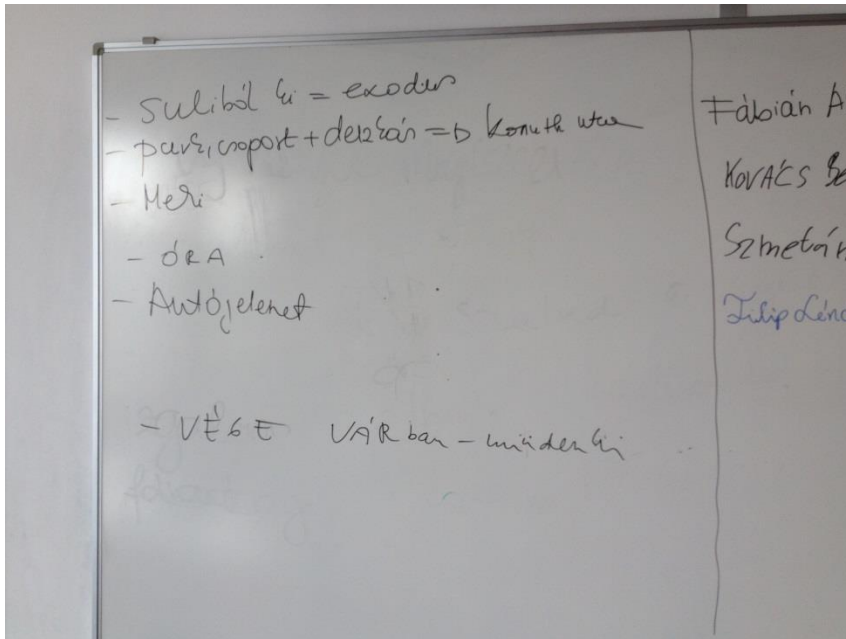 - Suliból ki = exodus
- park, csoport + deszkás => Kossuth utca
- Meki
- ÓRA
- Autójelenet
- VÉGE VÁRban - mindenki
Fábián A
KOVÁCS Be
Szmetán
Filip Lénc